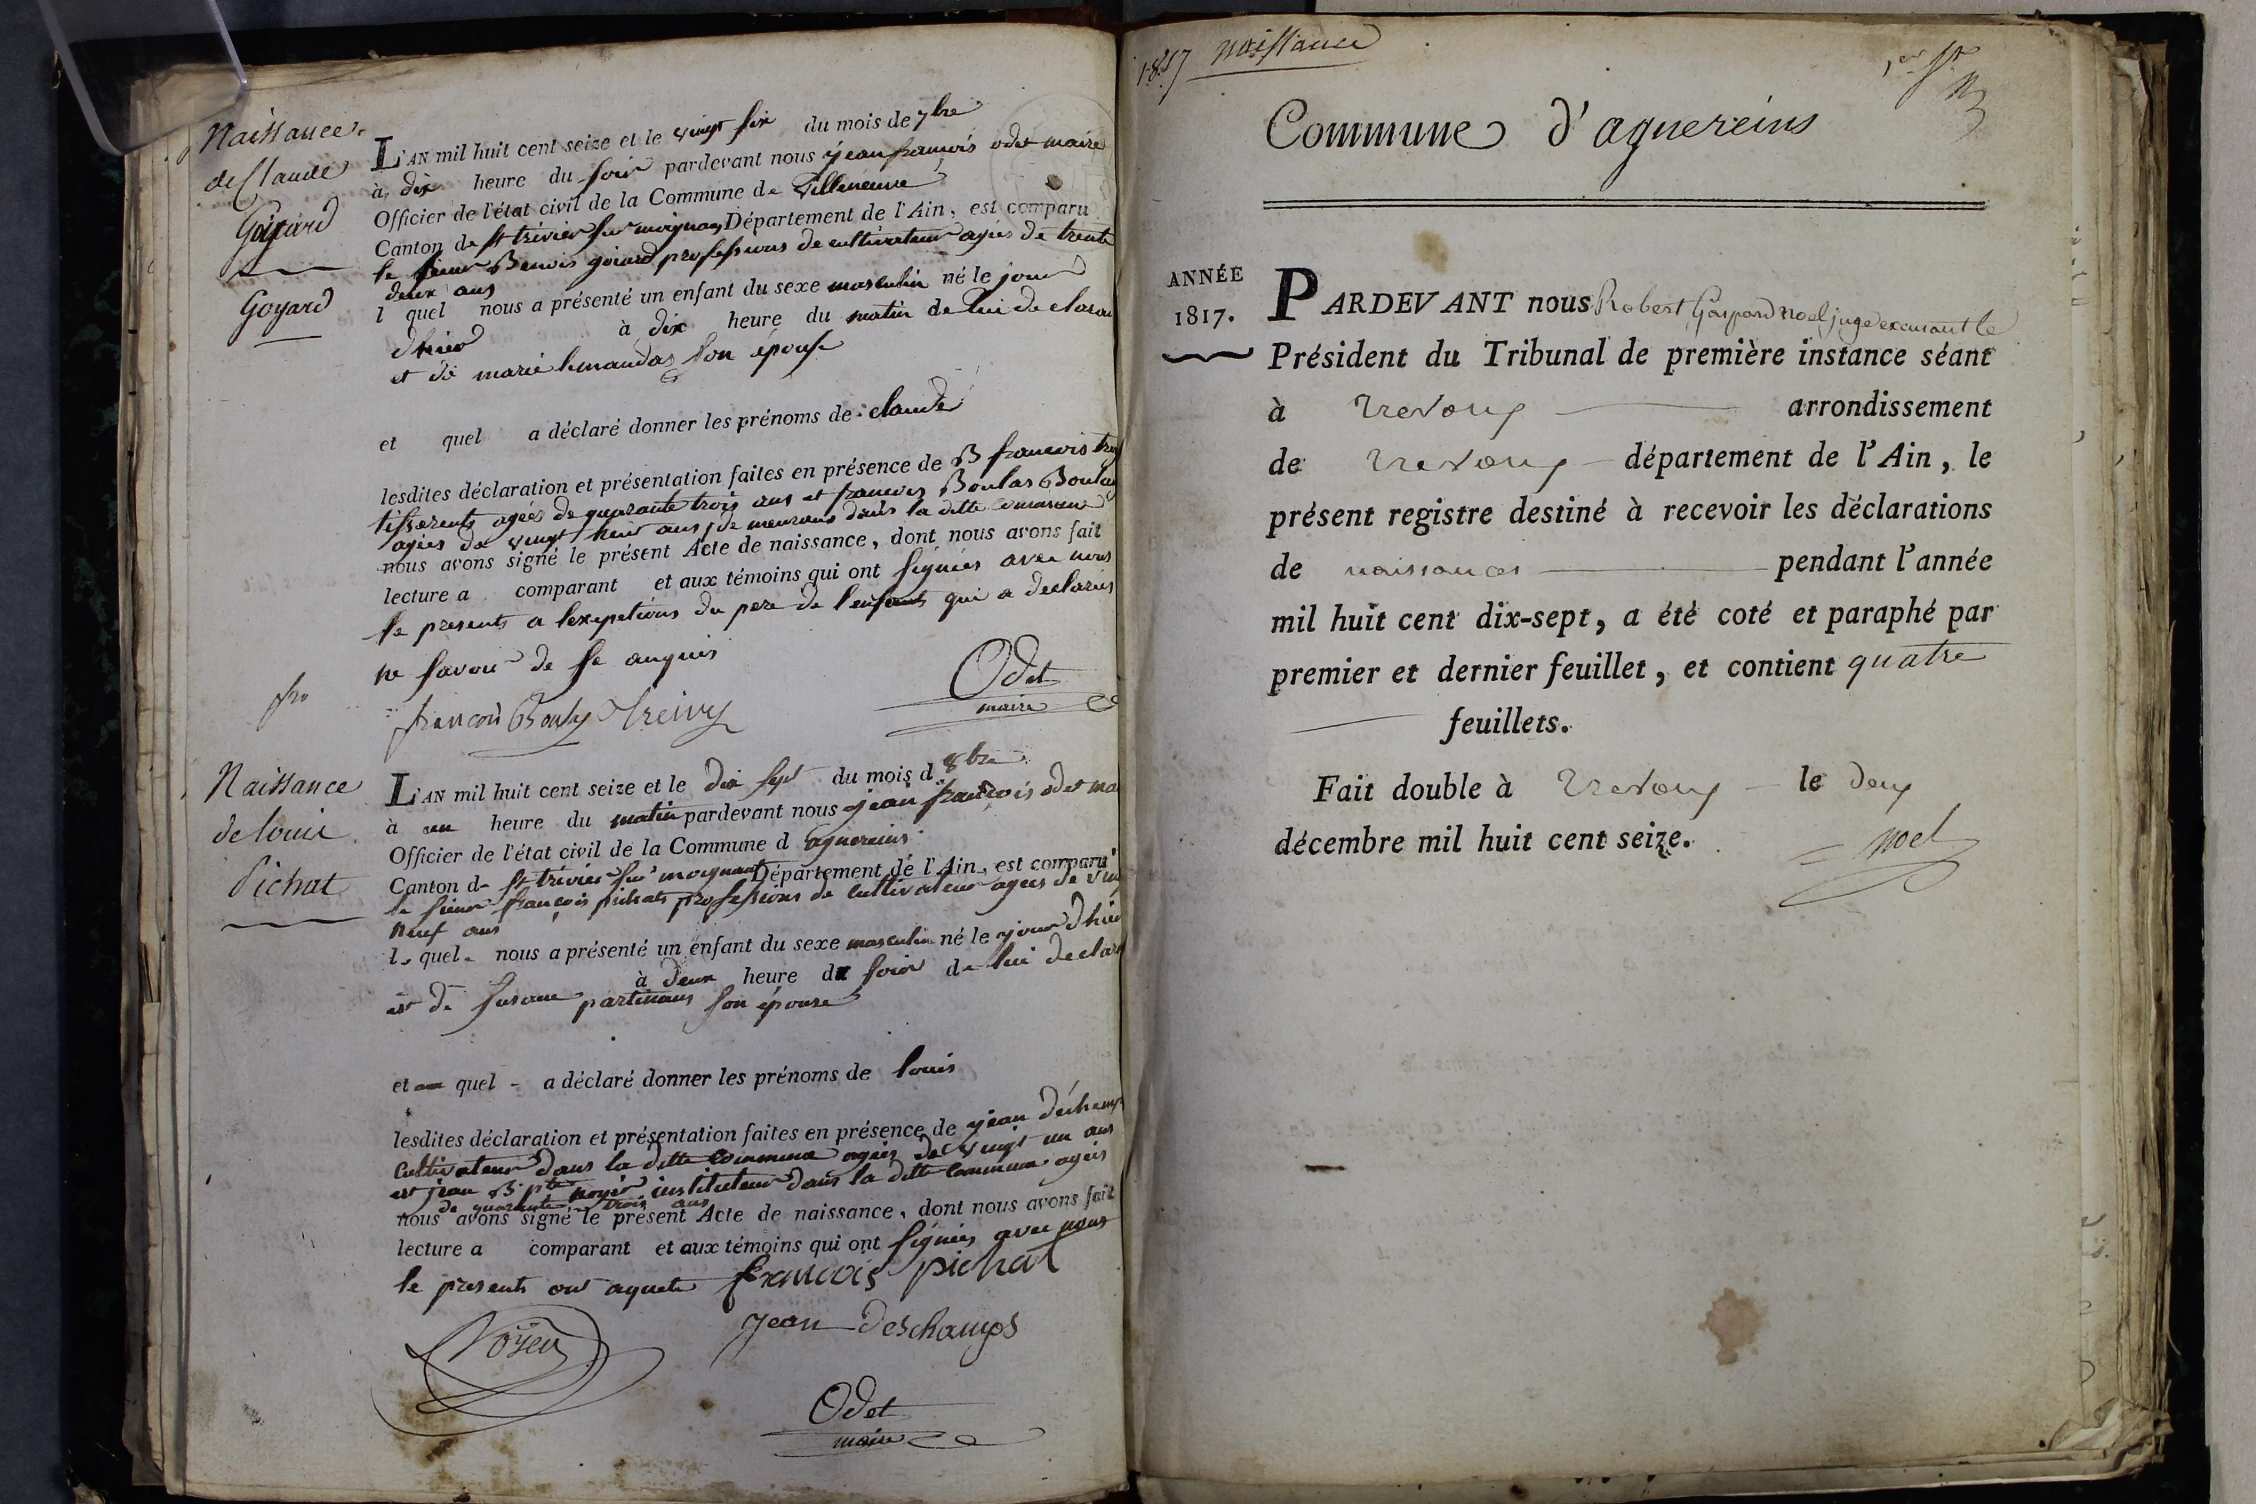 Naissance
de Claude
Goyard
Goyard
L'AN mil huit cent seize et le vingt six du mois de 7bre
à dix heure du soir pardevant nous jean francois odet maire
Officier de l'état civil de la Commune de Villeneuve
Canton de St trivier sur moignan Département de l'Ain, est comparu
le sieur Benois goiard professions de cultivateur agés de trente
deux ans
l quel nous a présenté un enfant du sexe masculin né le jour
dhier à dix heure du matin de lui declaran
et de marie son épouse
et quel a déclaré donner les prénoms de claude
lesdites déclaration et présentation faites en présence de B francois
tisserents agées de quarante trois ans et francois Boulas
agées de vingt ans de meurans dans la ditte commune
nous avons signé le présent Acte de naissance, dont nous avons fait
lecture a comparant et aux témoins qui ont signées avec nous
le presents a lexepetions du pere de lenfants qui a declarus
ne savoir de se anquis
francois Bouly
Odet
maire
Naissance
de louis
Pichat
L'AN mil huit cent seize et le dix sept du mois d 8bre
à un heure du matin pardevant nous jean francois odet ma
Officier de l'état civil de la Commune d aguereins
Canton de St trivier sur moignant Département de l'Ain, est comparu
le sieur francois pichat professions de cultivateur agées de vin
neuf ans
le quel nous a présenté un enfant du sexe masculin né le jour dhier
à deux heure du soir de lui declar
et de susane son épouse
et au quel - a déclaré donner les prénoms de louis
lesdites déclaration et présentation faites en présence de jean déchamp
cultivateur dans la ditte commune agées de vingt un ans
et jean B.pte noyer instituteur dans la ditte commune agées
de quarante trois ans
nous avons signé le présent Acte de naissance, dont nous avons fait
lecture a comparant et aux témoins qui ont signées avec nous
le presents francois pichat
jean deschamps
Noyer
Odet
maire
1817 naissance
1er
Commune d'aguereins
ANNÉE
1817.
PARDEVANT nous Robert Gaspard Noel juge exerçant le
Président du Tribunal de première instance séant
à Trevoux arrondissement
de Trevoux département de l'Ain, le
présent registre destiné à recevoir les déclarations
de naissances pendant l'année
mil huit cent dix-sept, a été coté et paraphé par
premier et dernier feuillet, et contient quatre
feuillets.
Fait double à Trevoux le deux
décembre mil huit cent seize.
Noel